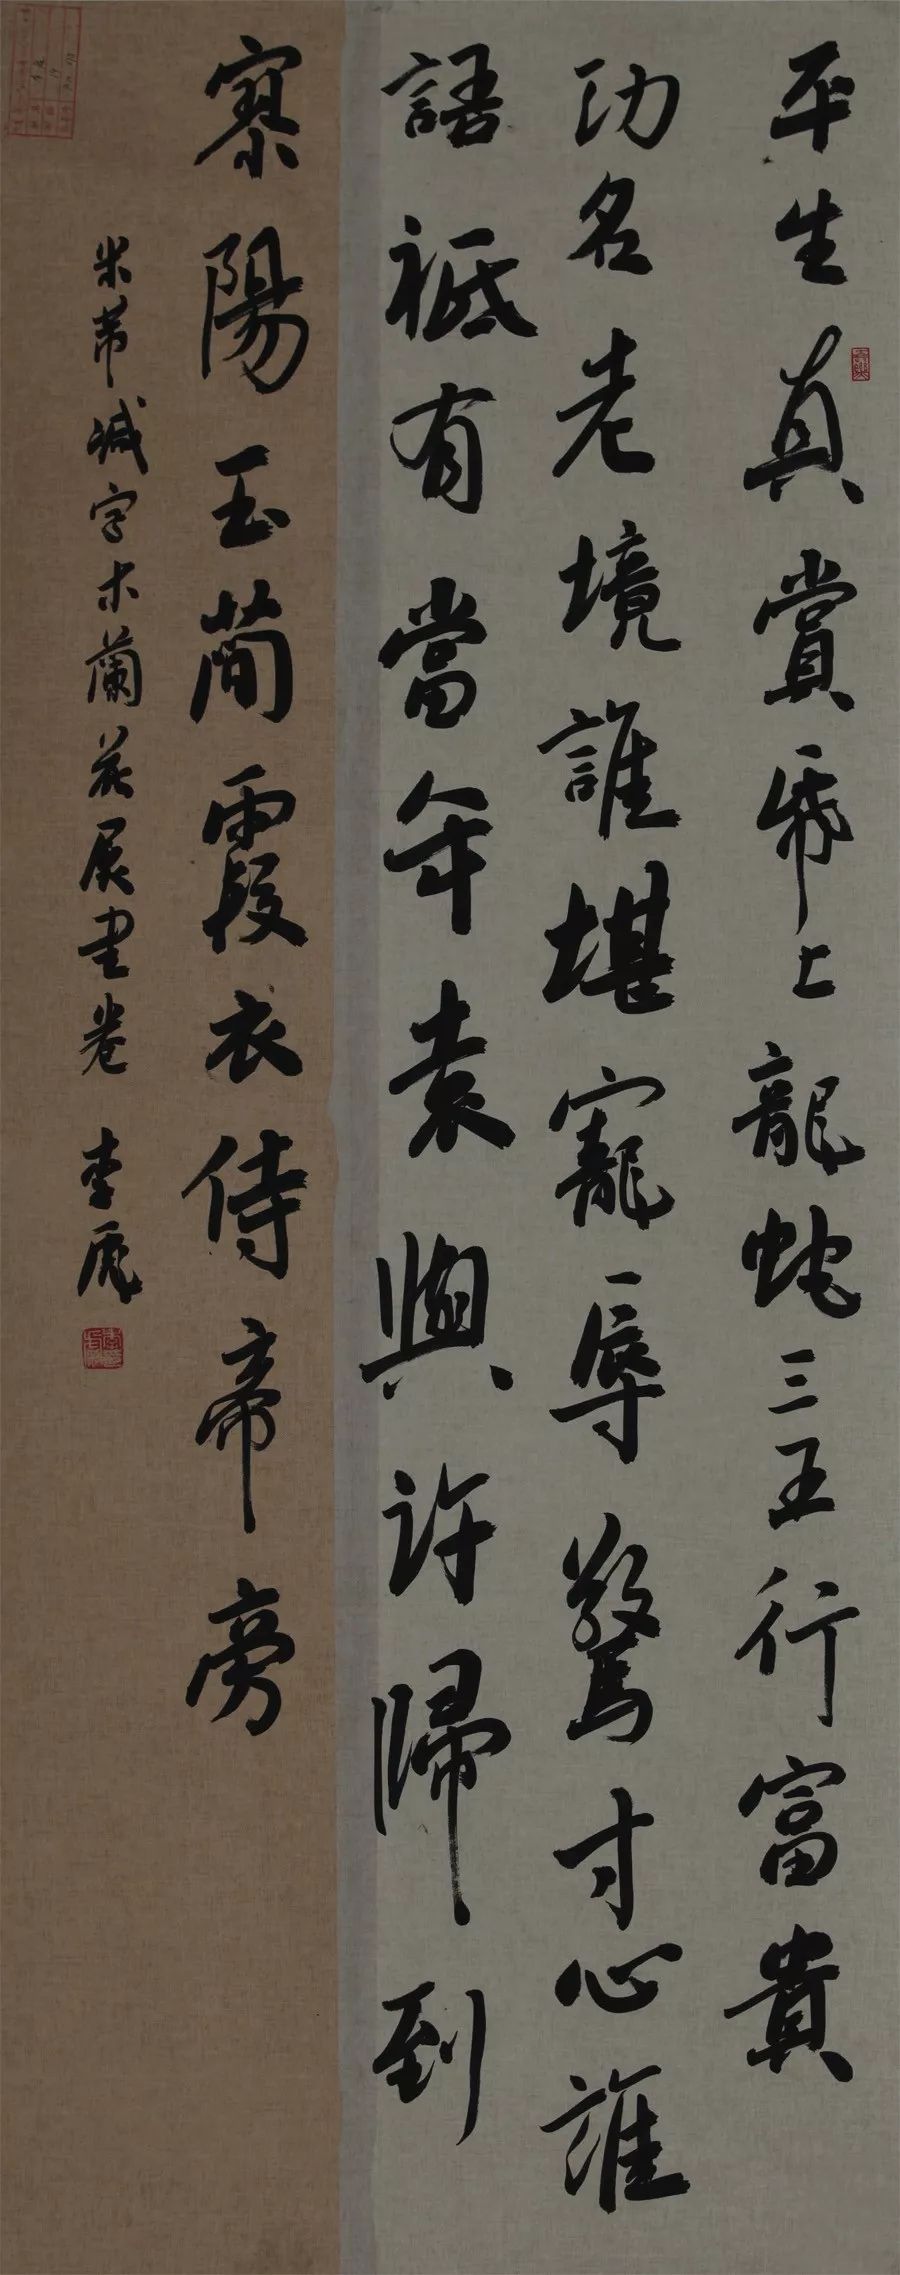 平生真賞紙上龍蛇三五行富貴
功名老境誰堪寵辱驚寸心誰
語祗有當年袁與許歸到
寥陽玉簡霞衣侍帝旁
米芾減字木蘭花展書卷 李